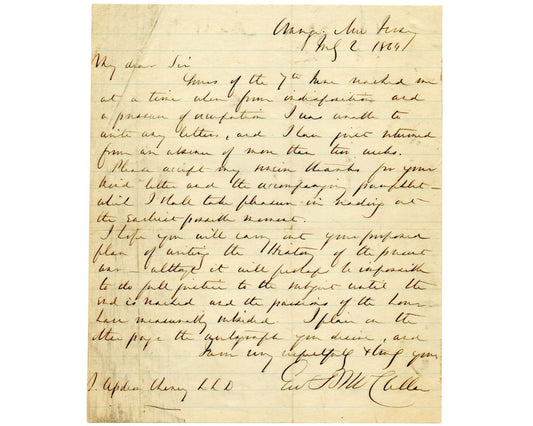 Orange, New Jersey
July 2 1864
My dear Sir
Yours of the 7th June reached me
at a time when from indisposition and
a pressure of occupation I was unable to
write any letters, and I have just returned
from an absence of more than two weeks.
Please accept my sincere thanks for your
kind letter and the accompanying pamphlet —
which I shall take pleasure in reading at
the earliest possible moment.
I hope you will carry out your proposed
plan of writing the History of the present
war — altho' it will perhaps be impossible
to do full justice to the subject until the
end is reached and the passions of the hour
have measurably subsided. I place on the
other page the autograph you desire, and
am very respectfully & truly yours
Geo B McClellan
J. L L D